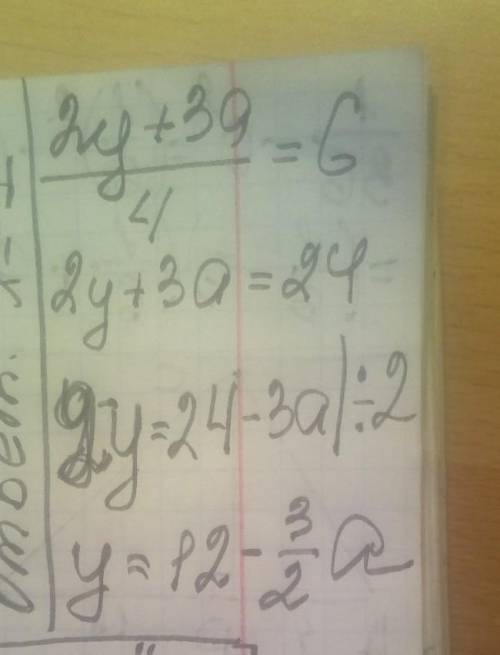 2y+3a/4 = 6
2y+3a=24
2y=24-3a|÷2
y=12-3/2 a
Ответ: